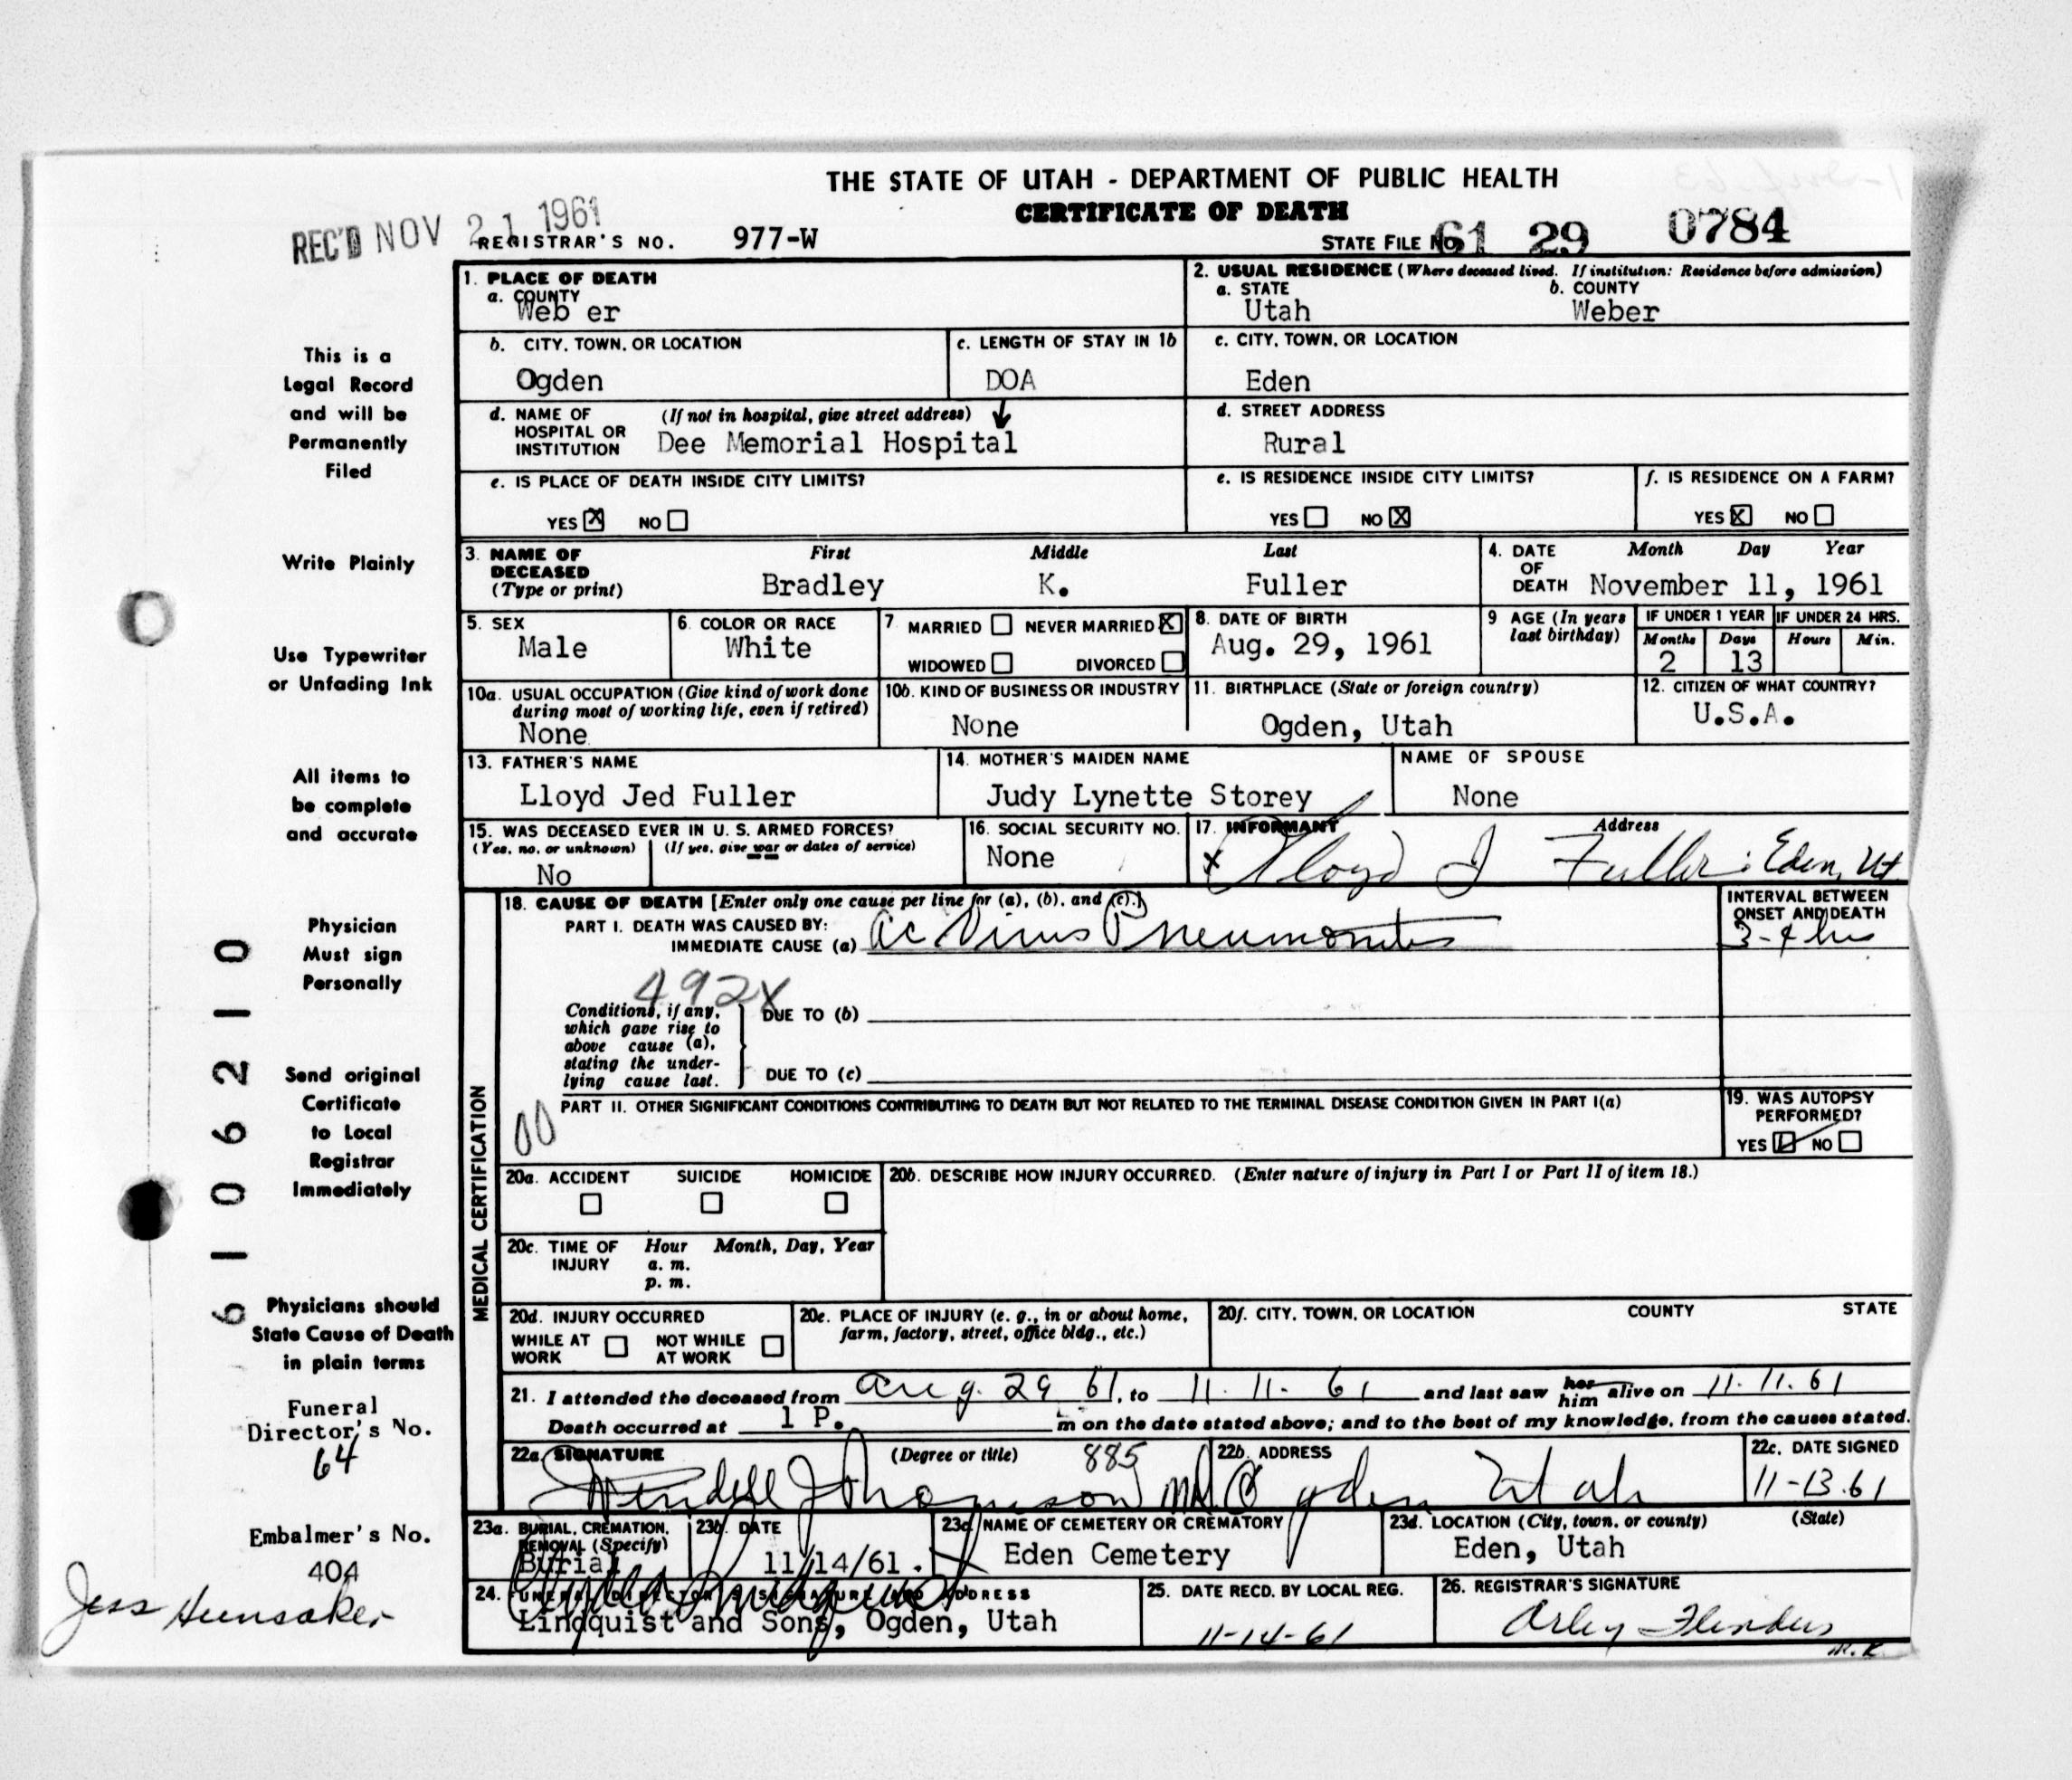 THE STATE OF UTAH - DEPARTMENT OF PUBLIC HEALTH
CERTIFICATE OF DEATH
REC'D NOV 21 1961
REGISTRAR'S NO. 977-W STATE FILE NO. 61 29 0784
1. PLACE OF DEATH
a. COUNTY
Web er
2. USUAL RESIDENCE (Where deceased lived. If institution: Residence before admission)
a. STATE b. COUNTY
Utah Weber
b. CITY, TOWN, OR LOCATION
Ogden
c. LENGTH OF STAY IN 1b
DOA
c. CITY, TOWN, OR LOCATION
Eden
d. NAME OF HOSPITAL OR INSTITUTION (If not in hospital, give street address)
Dee Memorial Hospital
d. STREET ADDRESS
Rural
e. IS PLACE OF DEATH INSIDE CITY LIMITS?
YES X NO
e. IS RESIDENCE INSIDE CITY LIMITS?
YES NO X
f. IS RESIDENCE ON A FARM?
YES X NO
3. NAME OF DECEASED (Type or print)
First Middle Last
Bradley K. Fuller
4. DATE OF DEATH Month Day Year
November 11, 1961
5. SEX
Male
6. COLOR OR RACE
White
7 MARRIED NEVER MARRIED X
WIDOWED DIVORCED
8. DATE OF BIRTH
Aug. 29, 1961
9 AGE (In years last birthday)
IF UNDER 1 YEAR IF UNDER 24 HRS.
Months Days Hours Min.
2 13
10a. USUAL OCCUPATION (Give kind of work done during most of working life, even if retired)
None
10b. KIND OF BUSINESS OR INDUSTRY
None
11. BIRTHPLACE (State or foreign country)
Ogden, Utah
12. CITIZEN OF WHAT COUNTRY?
U.S.A.
13. FATHER'S NAME
Lloyd Jed Fuller
14. MOTHER'S MAIDEN NAME
Judy Lynette Storey
NAME OF SPOUSE
None
15. WAS DECEASED EVER IN U. S. ARMED FORCES?
(Yes, no, or unknown) (If yes, give war or dates of service)
No
16. SOCIAL SECURITY NO.
None
17. INFORMANT Address
x Lloyd J Fuller: Eden, Ut
18. CAUSE OF DEATH [Enter only one cause per line for (a), (b), and (c).]
PART I. DEATH WAS CAUSED BY:
IMMEDIATE CAUSE (a) Ac Virus Pneumonitis
INTERVAL BETWEEN ONSET AND DEATH
3-4 hrs
492X
Conditions, if any, which gave rise to above cause (a), stating the underlying cause last.
DUE TO (b)
DUE TO (c)
PART II. OTHER SIGNIFICANT CONDITIONS CONTRIBUTING TO DEATH BUT NOT RELATED TO THE TERMINAL DISEASE CONDITION GIVEN IN PART I(a)
00
19. WAS AUTOPSY PERFORMED?
YES NO
MEDICAL CERTIFICATION
20a. ACCIDENT SUICIDE HOMICIDE
20b. DESCRIBE HOW INJURY OCCURRED. (Enter nature of injury in Part I or Part II of item 18.)
20c. TIME OF INJURY Hour Month, Day, Year
a. m.
p. m.
20d. INJURY OCCURRED
WHILE AT WORK NOT WHILE AT WORK
20e. PLACE OF INJURY (e. g., in or about home, farm, factory, street, office bldg., etc.)
20f. CITY, TOWN, OR LOCATION COUNTY STATE
21. I attended the deceased from Aug. 29 61, to 11. 11. 61 and last saw her him alive on 11. 11. 61
Death occurred at 1 P. m on the date stated above; and to the best of my knowledge, from the causes stated.
22a. SIGNATURE (Degree or title) 885
Wendell J Thomson MD.
22b. ADDRESS
Ogden Utah
22c. DATE SIGNED
11-13.61
23a. BURIAL, CREMATION, REMOVAL (Specify)
Burial
23b. DATE
11/14/61.
23c. NAME OF CEMETERY OR CREMATORY
Eden Cemetery
23d. LOCATION (City, town, or county) (State)
Eden, Utah
24. FUNERAL DIRECTOR'S SIGNATURE AND ADDRESS
Lindquist and Sons, Ogden, Utah
25. DATE RECD. BY LOCAL REG.
11-14-61
26. REGISTRAR'S SIGNATURE
Arley Flinders
M.R.
This is a
Legal Record
and will be
Permanently
Filed
Write Plainly
Use Typewriter
or Unfading Ink
All items to
be complete
and accurate
Physician
Must sign
Personally
Send original
Certificate
to Local
Registrar
Immediately
Physicians should
State Cause of Death
in plain terms
Funeral
Director's No.
64
Embalmer's No.
404
Jess Hunsaker
6106210